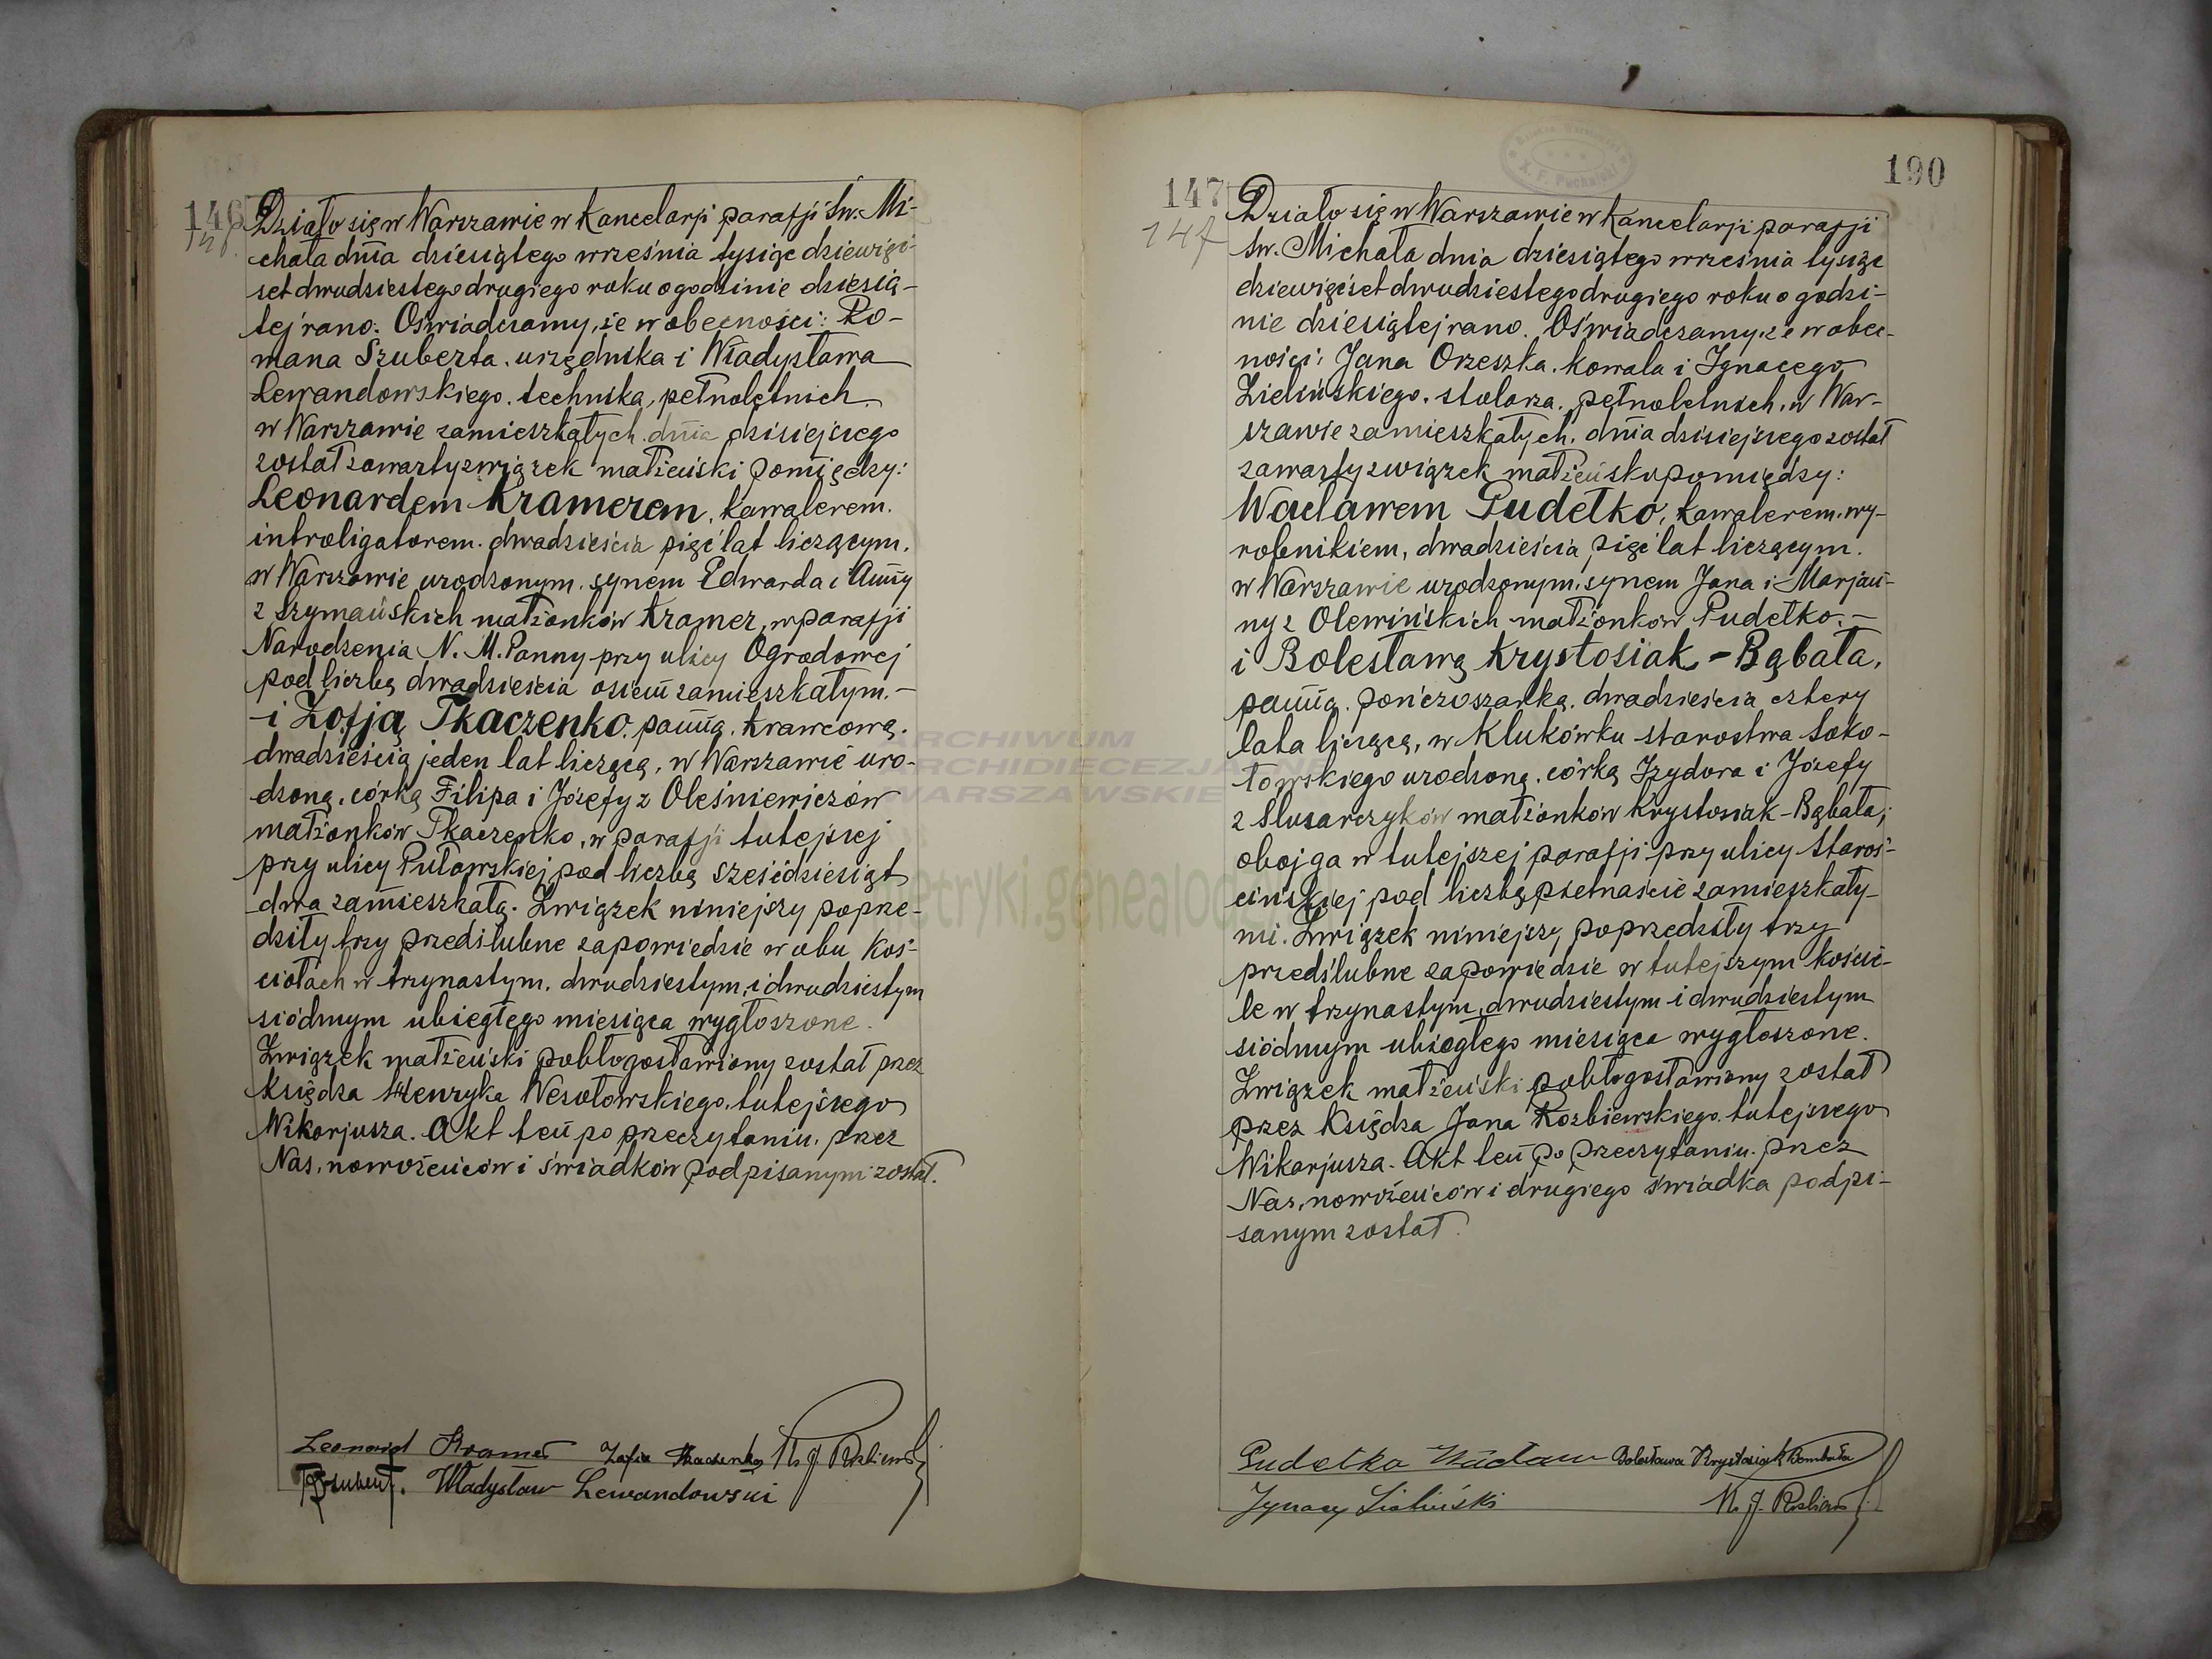 146
146
Działo się w Warszawie w Kancelarji parafji Św. Mi-
chała dnia dziesiątego września tysiąc dziewięć-
set dwudziestego drugiego roku o godzinie dziesią-
tej rano. Oświadczamy, że w obecności: Ro-
mana Szuberta, urzędnika i Władysława
Lewandowskiego, technika, pełnoletnich
w Warszawie zamieszkałych dnia dzisiejszego
został zawarty związek małżeński pomiędzy:
Leonardem Kramerem, kawalerem,
introligatorem, dwadzieścia pięć lat liczącym,
w Warszawie urodzonym, synem Edwarda i Anny
z Szymańskich małżonków Kramer, w parafji
Narodzenia N. M. Panny przy ulicy Ogrodowej
pod liczbą dwadzieścia osiem zamieszkałym. —
— i Zofją Tkaczenko, panną, krawcową,
dwadzieścia jeden lat liczącą, w Warszawie uro-
dzoną, córką Filipa i Józefy z Oleśniewiczów
małżonków Tkaczenko, w parafji tutejszej
przy ulicy Puławskiej pod liczbą sześćdziesiąt
dwa zamieszkałą. Związek niniejszy poprze-
dziły trzy przedślubne zapowiedzie w obu Koś-
ciołach w trzynastym, dwudziestym i dwudziestym
siódmym ubiegłego miesiąca wygłoszone.
Związek małżeński pobłogosławiony został przez
Księdza Henryka Wesołowskiego, tutejszego
Wikarjusza. Akt ten po przeczytaniu, przez
Nas, nowożeńców i świadków podpisanym został.
Leonard Kramer Zofia Tkaczenko
RSzubert. Władysław Lewandowski
190
147
147
Działo się w Warszawie w Kancelarji parafji
Św. Michała dnia dziesiątego września tysiąc
dziewięćset dwudziestego drugiego roku o godzi-
nie dziesiątej rano. Oświadczamy, że w obec-
ności: Jana Orzeszka, kowala i Ignacego
Zielińskiego, stolarza, pełnoletnich, w War-
szawie zamieszkałych, dnia dzisiejszego został
zawarty związek małżeński pomiędzy:
Wacławem Pudełko, kawalerem, wy-
robnikiem, dwadzieścia pięć lat liczącym,
w Warszawie urodzonym, synem Jana i Marjan-
ny z Olewińskich małżonków Pudełko. —
i Bolesławą Krystosiak - Bąbała,
panną, pończoszarką, dwadzieścia cztery
lata liczącą, w Klukówku starostwa Soko-
łowskiego urodzoną, córką Izydora i Józefy
z Slusarczyków małżonków Krystosiak - Bąbała,
obojga w tutejszej parafji przy ulicy Staroś-
cińskiej pod liczbą piętnaście zamieszkały-
mi. Związek niniejszy poprzedziły trzy
przedślubne zapowiedzie w tutejszym Koście-
le w trzynastym, dwudziestym i dwudziestym
siódmym ubiegłego miesiąca wygłoszone.
Związek małżeński pobłogosławiony został
przez Księdza Jana Kozbiewskiego, tutejszego
Wikarjusza. Akt ten po przeczytaniu, przez
Nas, nowożeńców i drugiego świadka podpi-
sanym został.
Pudełko Wacław Bolesława Krystosiak Bombała
Ignacy Zieliński
ARCHIWUM
ARCHIDIECEZJALNE
WARSZAWSKIE